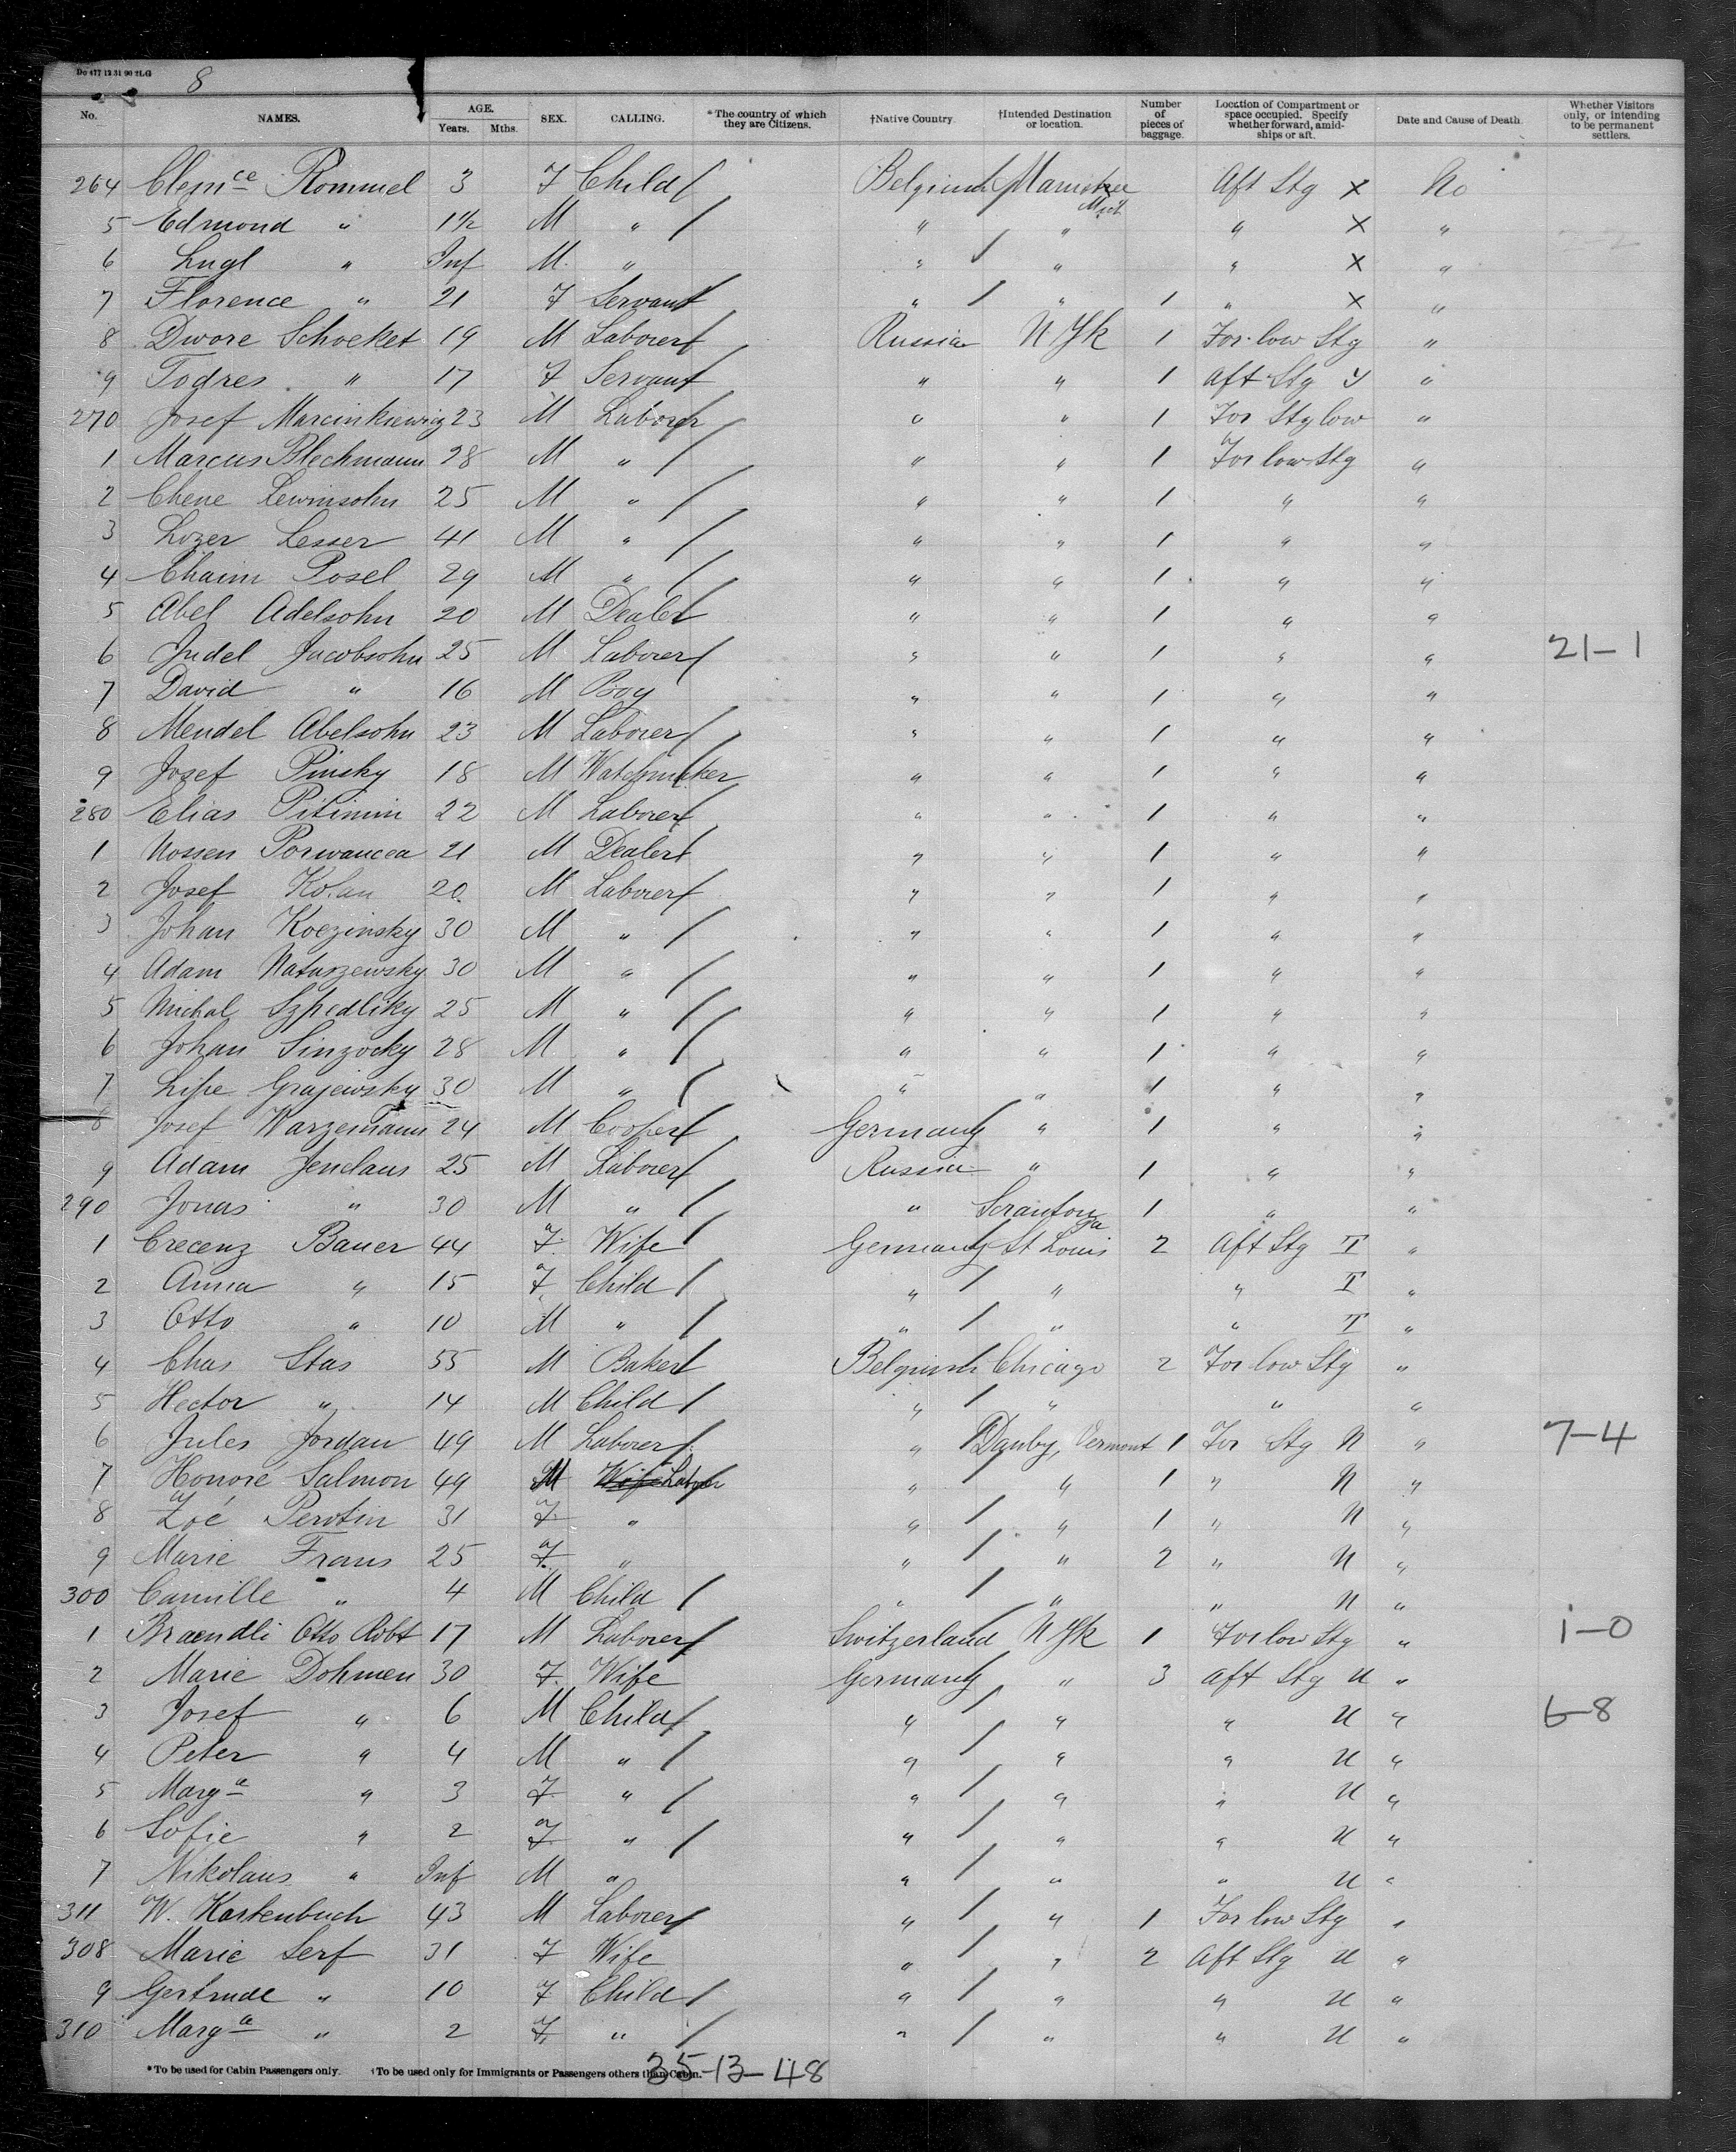 Do 477 12 31 90 2LG 8
No. NAMES. AGE. Years. Mths. SEX. CALLING. *The country of which they are Citizens. †Native Country. †Intended Destination or location. Number of pieces of baggage. Location of Compartment or space occupied. Specify whether forward, amidships or aft. Date and Cause of Death. Whether Visitors only, or intending to be permanent settlers.
264 Clemce Rommel 3 F Child / Belgium / Manistee Mich Aft Stg X No
5 Edmond " 1½ M " / " " " X "
6 " Inf M " " / " " X "
7 Florence " 21 F Servant " / " 1 " X "
8 Dwore Schoeket 19 M Laborer Russia N Yk 1 For low Stg "
9 Todres " 17 F Servant " " 1 Aft Stg "
270 Josef Marcinkiewicz 23 M Laborer " " 1 For Stg low "
1 Marcus Blechmann 28 M " / " " 1 For low Stg "
2 Chene Lewinsohn 25 M " / " " 1 " "
3 Lozer Lesser 41 M " / " " 1 " "
4 Chaim Posel 29 M " / " " 1 " "
5 Abel Adelsohn 20 M Dealer " " 1 " "
6 Judel Jacobsohn 25 M Laborer / " " 1 " " 21-1
7 David " 16 M Boy " " 1 " "
8 Mendel Abelsohn 23 M Laborer / " " 1 " "
9 Josef Pinsky 18 M Watchmaker " " 1 " "
280 Elias Pitimin 22 M Laborer " " 1 " "
1 Nossen Porwancea 21 M Dealer " " 1 " "
2 Josef Kolan 20 M Laborer " " 1 " "
3 Johan Koezinsky 30 M " / " " 1 " "
4 Adam Natuszewsky 30 M " / " " 1 " "
5 Michal Szpedliky 25 M " / " " 1 " "
6 Johan Sinzocky 28 M " / " " 1 " "
7 Lipe Grajewsky 30 M " / " " 1 " "
8 Josef Warzemann 24 M Cooper Germany " 1 " "
9 Adam Jenclaus 25 M Laborer Russia " 1 " "
290 Jonas " 30 M " / " Scranton Pa 1 " "
1 Crecenz Bauer 44 F Wife / Germany St Louis 2 Aft Stg T "
2 Anna " 15 F Child / " / " " T "
3 Otto " 10 M " / " / " " T "
4 Chas Stas 55 M Baker Belgium Chicago 2 For low Stg "
5 Hector " 14 M Child / " / " " "
6 Jules Jordan 49 M Laborer / " / Danby, Vermont 1 For Stg N " 7-4
7 Honoré Salmon 49 M Wife Laborer " / " 1 " N "
8 Zoé Perotin 31 F " " / " 1 " N "
9 Marie Frans 25 F " " / " 2 " N "
300 Camille " 4 M Child / " / " " N "
1 Braendli Otto Robt 17 M Laborer Switzerland N Yk 1 For low Stg " 1-0
2 Marie Dohmen 30 F Wife Germany " 3 Aft Stg U "
3 Josef " 6 M Child / " / " " U " 6-8
4 Peter " 4 M " / " / " " U "
5 Marga " 3 F " / " / " " U "
6 Sofie " 2 F " / " / " " U "
7 Nikolaus " Inf M " " / " " U "
311 W. Kartenbuch 43 M Laborer " / " 1 For low Stg "
308 Marie Serf 31 F Wife " / " 2 Aft Stg U "
9 Gertrude " 10 F Child / " / " " U "
310 Marga " 2 F " / " / " " U "
*To be used for Cabin Passengers only. †To be used only for Immigrants or Passengers others than Cabin. 35-13-48